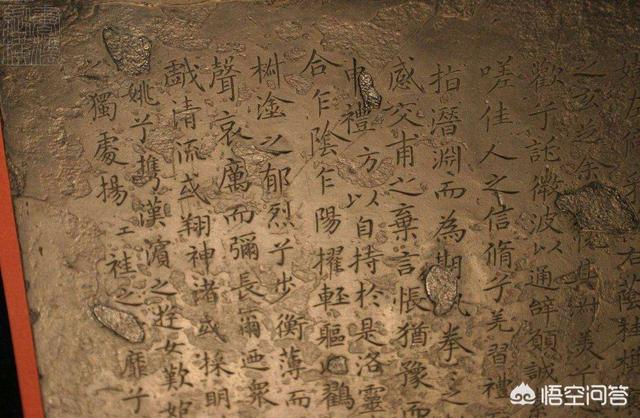 右蔭
之玄芝余悅其美兮
歡兮託微波以通辭願誠
嗟佳人之信脩兮羌習禮
指潛淵而為期執拳之
感交甫之棄言悵猶豫而
申禮方以自持於是洛靈
合乍陰乍陽擢輕軀以鶴
樹塗之郁烈兮步衡薄而
聲哀厲而彌長爾迺眾
戲清流或翔神渚或採明
姚兮攜漢濱之游女歎匏
之獨處揚袿之靡兮
悟空问答